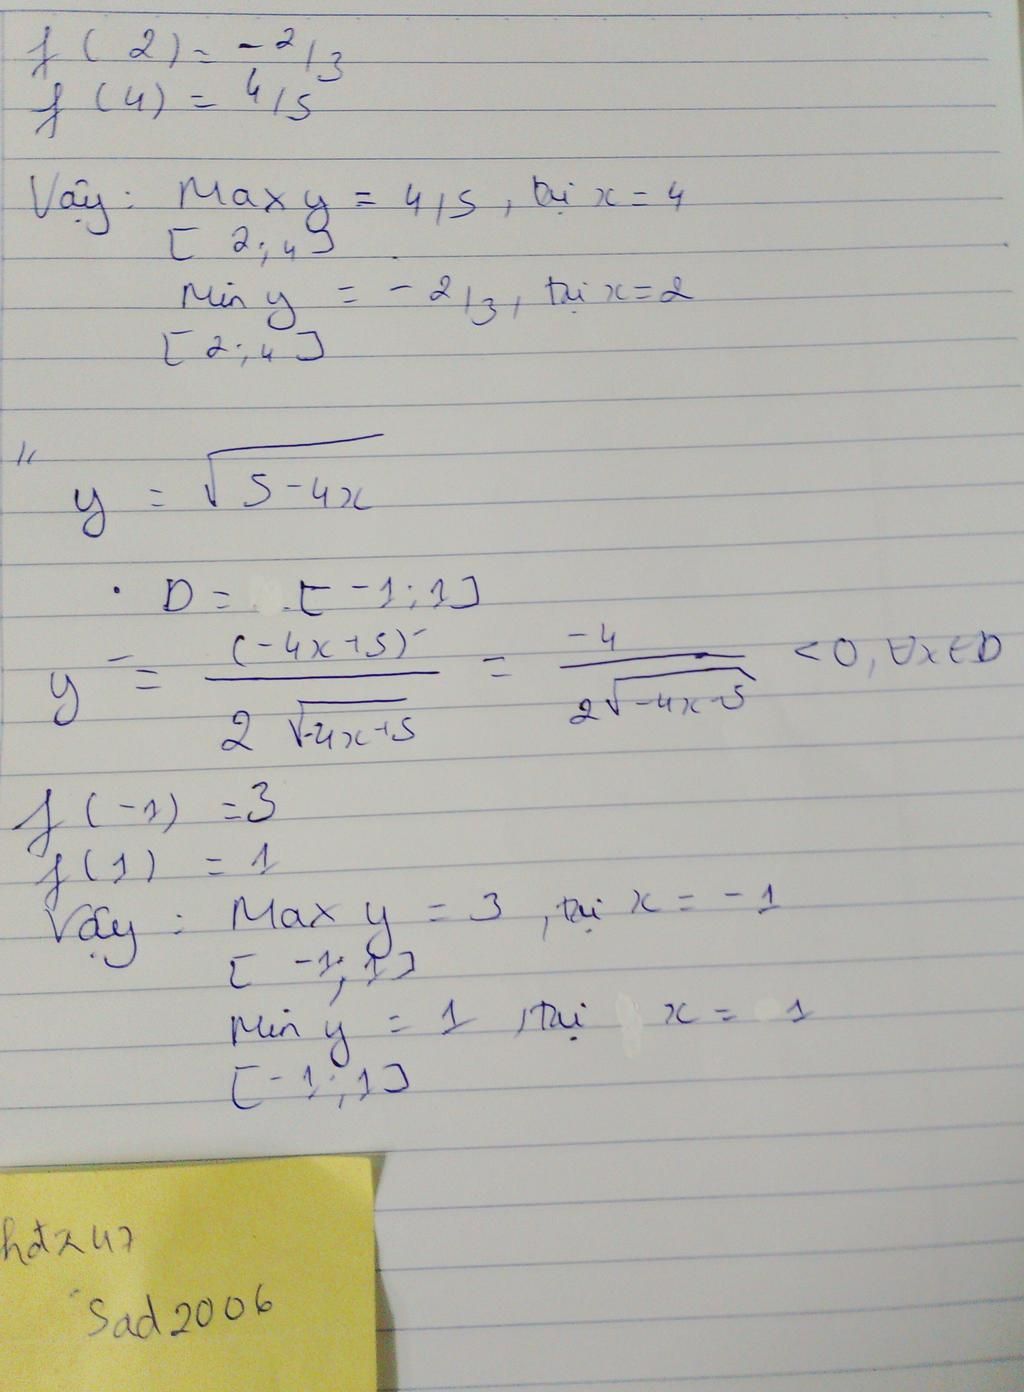 f(2) = -2/3
f(4) = 4/5
Vậy: Max y = 4/5, tại x = 4
[2;4]
Min y = -2/3, tại x = 2
[2;4]
"
y = √5-4x
· D = [-1;1]
y' = (-4x+5)' / 2√-4x+5 = -4 / 2√-4x+5 < 0, ∀x∈D
f(-1) = 3
f(1) = 1
Vậy: Max y = 3, tại x = -1
[-1;1]
Min y = 1, tại x = 1
[-1;1]
Sad2006